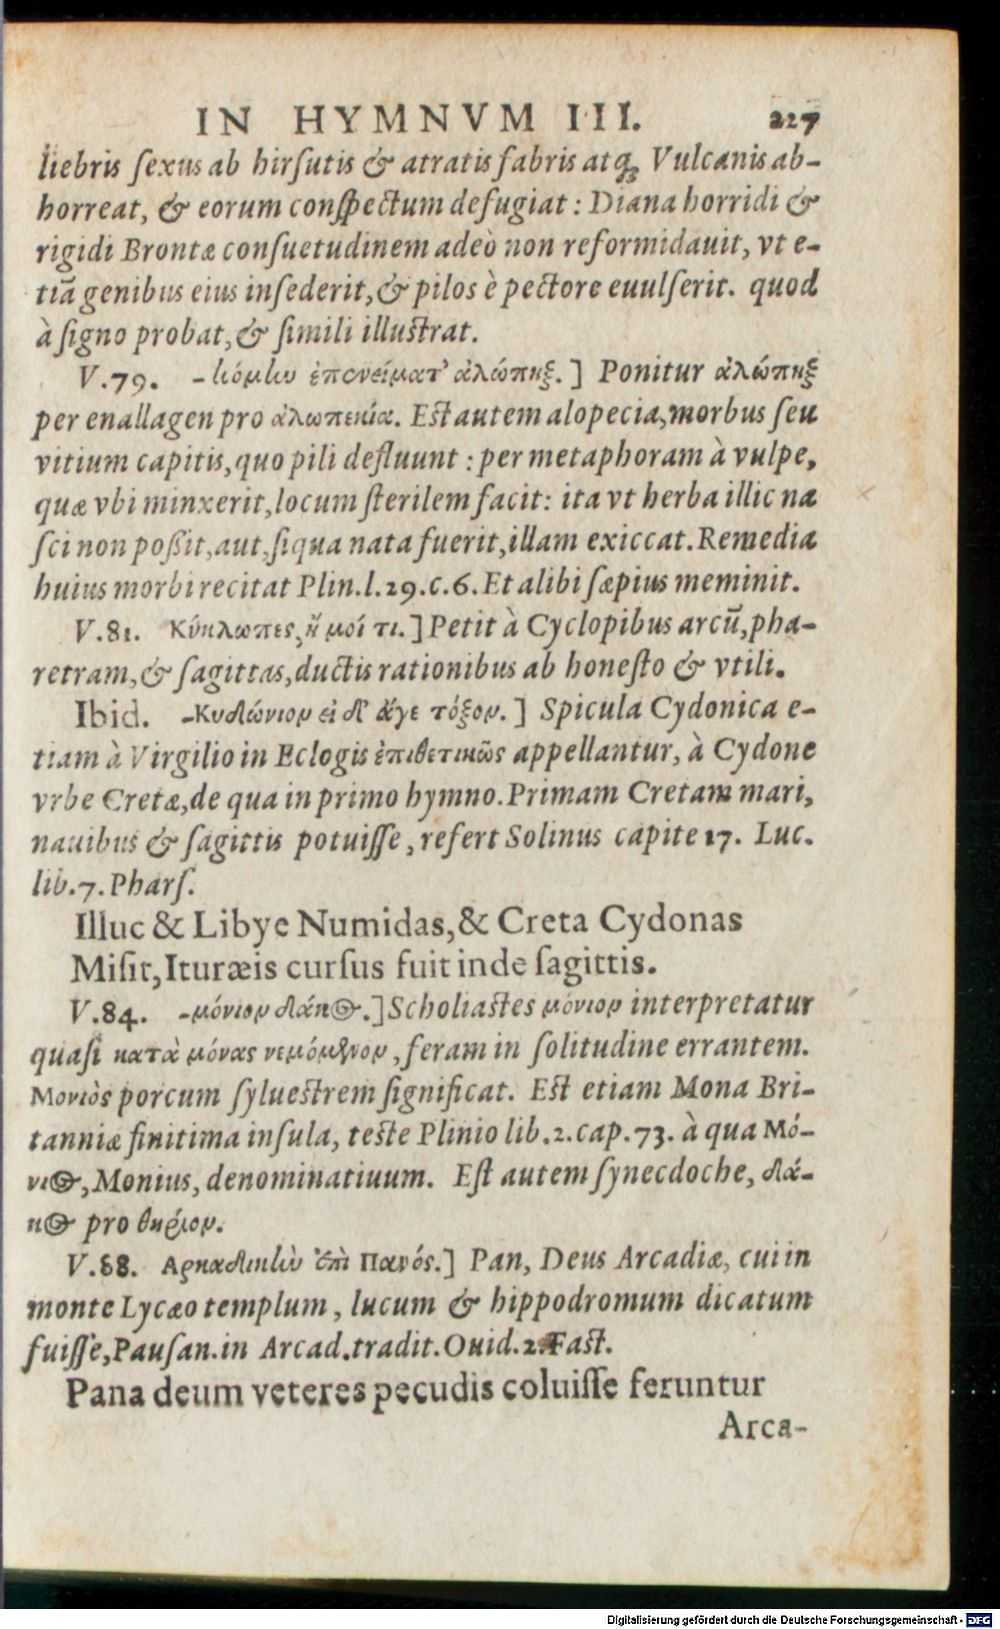 IN HYMNVM III. 227
liebris ſexus ab hirſutis & atratis fabris atq́₃ Vulcanis ab-
horreat, & eorum conſpectum defugiat : Diana horridi &
rigidi Brontæ conſuetudinem adeò non reformidauit, vt e-
tiā genibus eius inſederit, & pilos è pectore euulſerit. quod
à ſigno probat, & ſimili illuſtrat.
V.79. -κόμην ἐπενείματ' ἀλώπηξ.] Ponitur ἀλώπηξ
per enallagen pro ἀλωπεκία. Eſt autem alopecia, morbus ſeu
vitium capitis, quo pili defluunt : per metaphoram à vulpe,
quæ vbi minxerit, locum ſterilem facit: ita vt herba illic na
ſci non poßit, aut, ſiqua nata fuerit, illam exiccat. Remedia
huius morbi recitat Plin.l.29.c.6. Et alibi ſæpius meminit.
V.81. Κύκλωπες, ἤ μοί τι.] Petit à Cyclopibus arcū, pha-
retram, & ſagittas, ductis rationibus ab honeſto & vtili.
Ibid. -Κυδώνιον εἰ δ' ἄγε τόξον.] Spicula Cydonica e-
tiam à Virgilio in Eclogis ἐπιθετικῶς appellantur, à Cydone
vrbe Cretæ, de qua in primo hymno. Primam Cretam mari,
nauibus & ſagittis potuiſſe, refert Solinus capite 17. Luc.
lib.7. Pharſ.
Illuc & Libye Numidas, & Creta Cydonas
Miſit, Ituræis curſus fuit inde ſagittis.
V.84. -μόνιον δάκος.] Scholiaſtes μόνιον interpretatur
quaſi κατὰ μόνας νεμόμενον, feram in ſolitudine errantem.
Μονιὸς porcum ſylueſtrem ſignificat. Eſt etiam Mona Bri-
tanniæ finitima inſula, teſte Plinio lib.2.cap.73. à qua Μό-
νιος, Monius, denominatiuum. Eſt autem ſynecdoche, δά-
κος pro θηρίον.
V.88. Αρκαδικὴν ἐπὶ Πανός.] Pan, Deus Arcadiæ, cui in
monte Lycæo templum, lucum & hippodromum dicatum
fuiſſe, Pauſan. in Arcad. tradit. Ouid.2.Faſt.
Pana deum veteres pecudis coluiſſe feruntur
Arca-
Digitalisierung gefördert durch die Deutsche Forschungsgemeinschaft - DFG